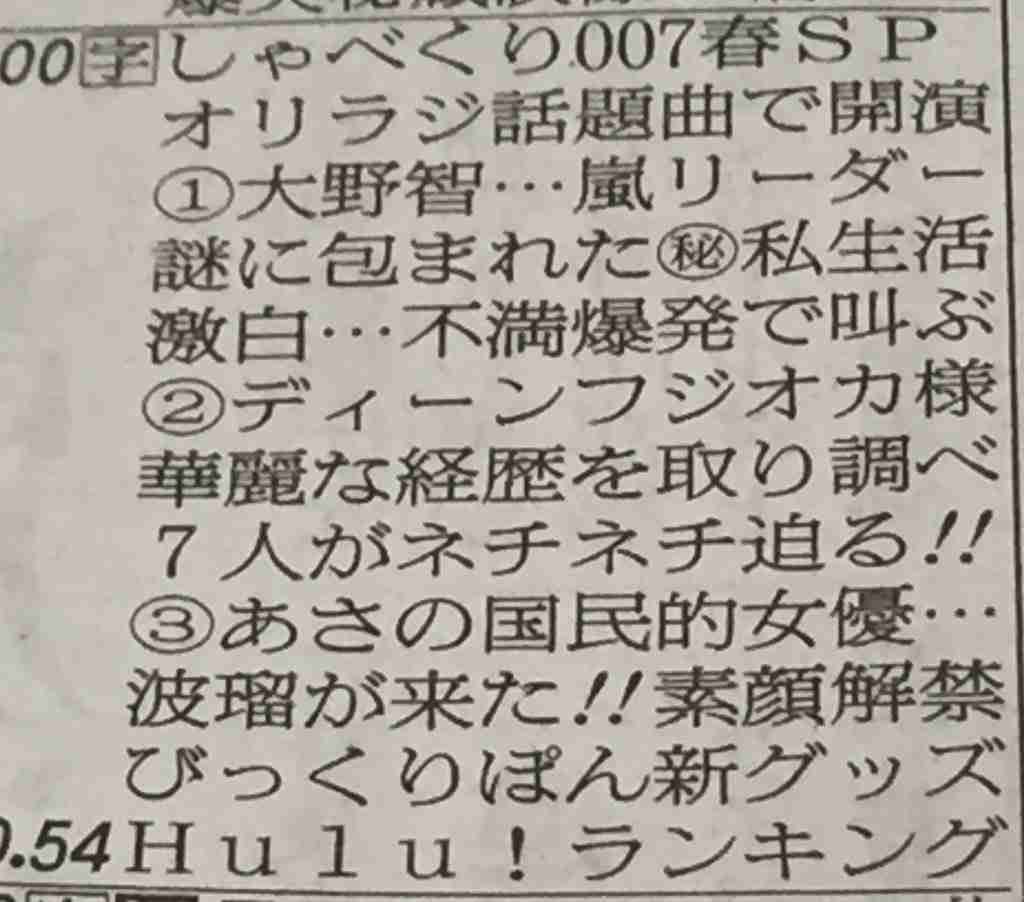 00字しゃべくり007春ＳＰ
オリラジ話題曲で開演
①大野智…嵐リーダー
謎に包まれた㊙私生活
激白…不満爆発で叫ぶ
②ディーンフジオカ様
華麗な経歴を取り調べ
７人がネチネチ迫る!!
③あさの国民的女優…
波瑠が来た!!素顔解禁
びっくりぽん新グッズ
.54Ｈｕｌｕ！ランキング